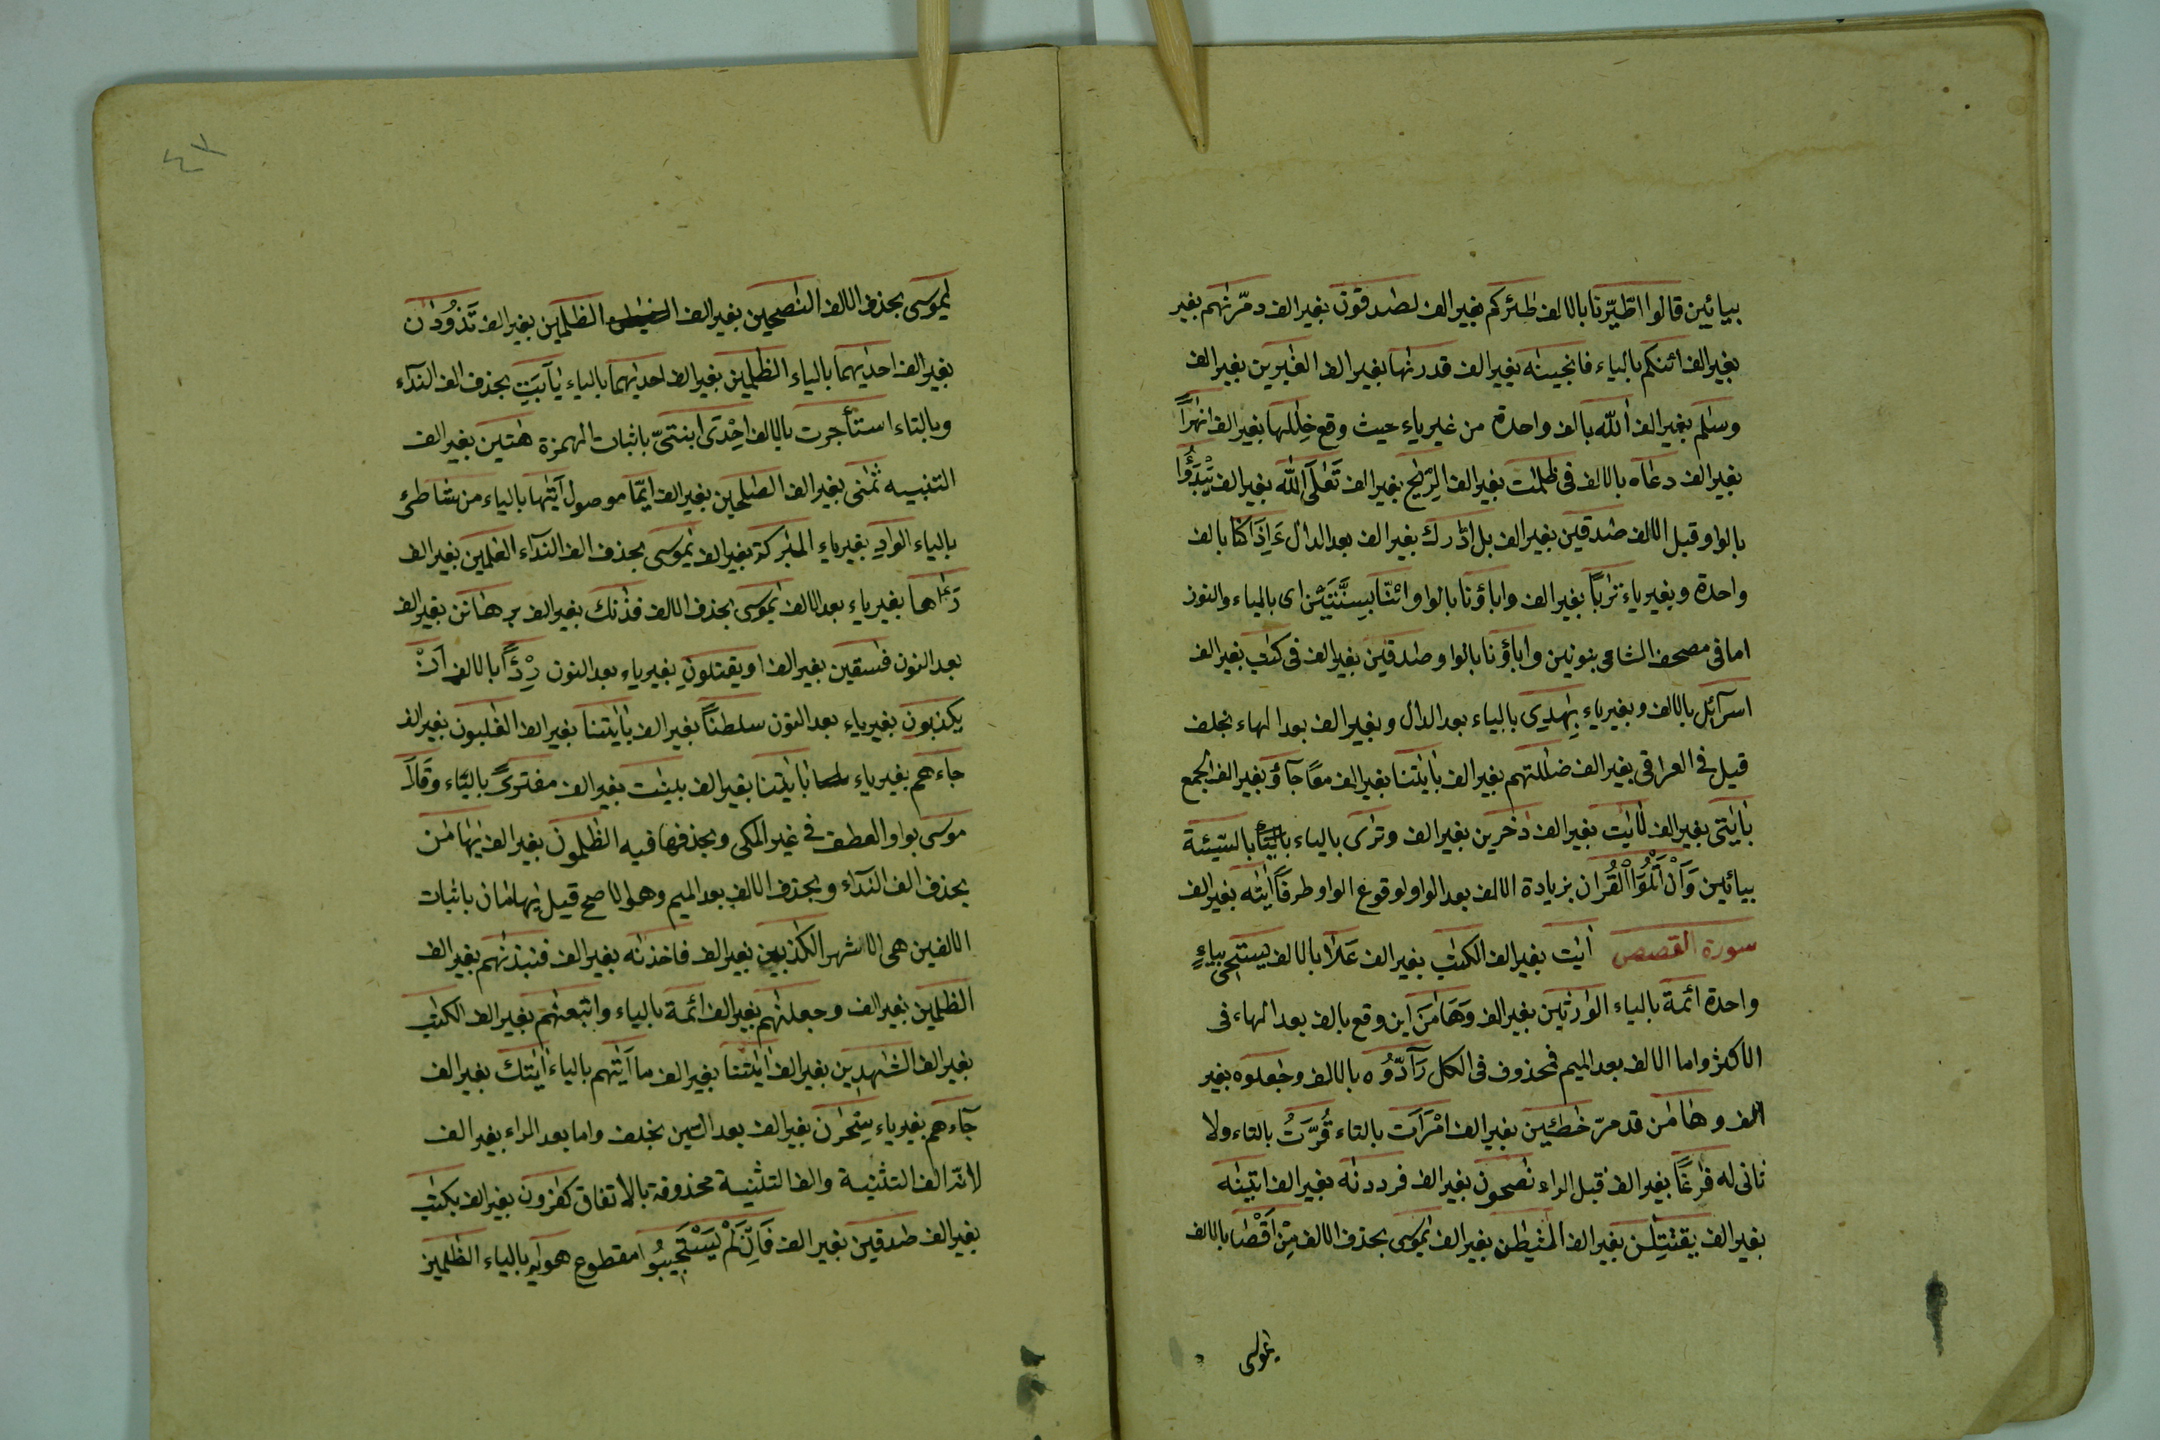 بيائين قالوا اطّيّرنا بالالف طٰئركم بغير الف لصٰدقون بغير الف دمّرنٰهم بغير
بغير الف ائنكم بالياء فانجينٰه بغير الف قدرنٰها بغير الف الغٰبرين بغير الف
وسلٰم بغير الف اٰلله بالف واحدة من غير ياء حيث وقع خلٰلها بغير الف انهٰرًا
بغير الف دعاه بالالف فى ظلمٰت بغير الف الرّيٰح بغير الف تَعٰلَى اللّٰه بغير الف يَبْدَؤُا
بالواو قبل الالف صٰدقين بغير الف بل ادّٰرك بغير الف بعد الدال ءَاِذَا كنا بالف
واحدة وبغير ياء تُرٰبًا بغير الف واباؤنا بالواو ائنّا بسِنَّتَيْن اى بالياء والنون
اما فى مصحف الشامى بنونين واباؤنا بالواو صٰدقين بغير الف فى كتٰب بغير الف
اسرآئل بالالف وبغير ياء بِهٰدِى بالياء بعد الدال وبغير الف بعد الهاء بخلف
قيل فى العراقى بغير الف ضلٰلتهم بغير الف باٰيٰتنا بغير الف معًا جآؤ بغير الف الجمع
باٰيٰتى بغير الف لاٰيٰت بغير الف دٰخرين بغير الف وترى بالياء بالسّيئة
بيائين وَاَنْ اَتْلُوَا الْقُرْاٰن بزيادة الالف بعد الواو لوقوع الواو طرفًا اٰيٰته بغير الف
سورة القصص اٰيٰت بغير الف الكتٰب بغير الف عَلَا بالالف يستحى بياءٍ
واحدة ائمة بالياء الوٰرثين بغير الف وَهَامٰنَ اين وقع بالف بعد الهاء فى
الاكثر واما الالف بعد الميم فمحذوف فى الكل رَآدُّوْه بالالف وجٰعلوه بغير
الف وهامٰن قد مرّ خٰطئين بغير الف امْرَاَت بالتاء قُرَّتُ بالتاء ولا
ثانى له فٰرِغًا بغير الف قبل الراء نٰصحون بغير الف فرددنٰه بغير الف اٰتينٰه
بغير الف يقتتلٰن بغير الف الشيطٰن بغير الف يٰموسى بحذف الالف مِنْ اَقْصَا بالالف
يٰموسى
٤٣
يٰموسى بحذف الالف النٰصحين بغير الف الظٰلمين بغير الف تَذُوْدٰان
بغير الف احدٰيهما بالياء الظٰلمين بغير الف احدٰيهما بالياء يٰاَبَتِ بحذف الف النّدآء
وبالتاء استأجرت بالالف اِحْدَى ابنتىّ باثبات الهمزة هٰتين بغير الف
التنبيه ثمٰنى بغير الف الصٰلحين بغير الف ايّما موصول اٰتٰيها بالياء من شاطئ
بالياء الوادِ بغير ياء المبٰركة بغير الف يٰموسى بحذف الف النّدآء العٰلمين بغير الف
رَءاها بغير ياء بعد الالف يٰموسى بحذف الالف فذٰنك بغير الف برهانٰن بغير الف
بعد النون فٰسقين بغير الف او يقتلونِ بغير ياء بعد النون رِدْءًا بالالف اَنْ
يكذبون بغير ياء بعد النون سلطٰنًا بغير الف باٰيٰتنا بغير الف الغٰلبون بغير الف
جاءهم بغير ياء باٰيٰتنا بغير الف بيّنٰت بغير الف مفترًى بالياء وقَالَ
موسى بواو العطف فى غير المكى وبحذفها فيه الظٰلمون بغير الف يٰهامٰن
بحذف الف النّدآء وبحذف الالف بعد الميم وهو الاصح قيل يٰهامان باثبات
الالفين هى الاشهر الكٰذبين بغير الف فاخذنٰه بغير الف فنبذنٰهم بغير الف
الظٰلمين بغير الف وجعلنٰهم بغير الف ائمة بالياء واتبعنٰهم بغير الف الكتٰب
بغير الف الشٰهدين بغير الف اٰيٰتنا بغير الف ما اَتٰيهم بالياء اٰيٰتك بغير الف
جآءهم بغير ياء سٰحرٰن بغير الف بعد السّين بخلف واما بعد الراء بغير الف
لانّه الف التثنية والف التثنية محذوفة بالاتفاق كٰفرون بغير الف بكتٰب
بغير الف صٰدقين بغير الف فَاِنْ لَّمْ يَسْتَجِيْبُوْا مقطوع هوٰيه بالياء الظٰلمين